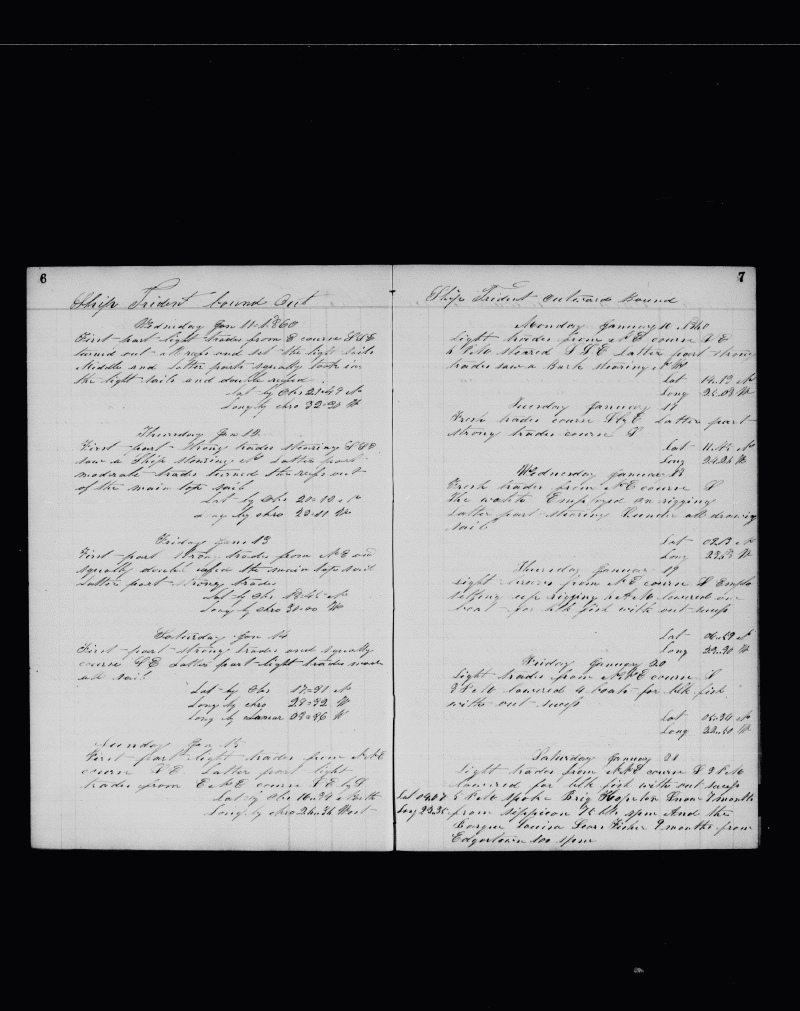 6
Ship Trident bound Out
Wednesday Jan 11 1860
First part light trades from E course SSE
turned out reefs and set the light sails
Middle and latter parts squally took in
the light sails and double reefed
Lat by Obs 21=49 N
Long by chro 32=30 W
Thursday Jan 12
First part strong trades stearing SSE
saw a Ship stearing N Latter part
moderate trades turned the reefs out
of the main top sail
Lat by Obs 20=12 N
Long by chro W
Friday Jan 13
First part strong trades from NE and
squally double reefed the main top sail
Latter part strong trades
Lat by Obs N
Long by chro 30=00 W
Saturday Jan 14
First part strong trades and squally
course SE Latter part light trades made
all sail
Lat by Obs 17=31 N
Long by chro 29=32 W
Long by Lunar W
Sunday Jan 15
First part light trades from NNE
course SE Latter part light
trades from ENE course SE by S
Lat by Obs 16=24 North
Long by chro West
7
Ship Trident outward Bound
Monday January 16 1860
Light trades from NE course SE
4 PM steared SSE Latter part strong
trades saw a Bark stearing NW
Lat 14.12 N
Long W
Tuesday January 17
Fresh trades course S by E Latter part
strong trades course S
Lat N
Long W
Wednesday January 18
Fresh trades from NE course S
The watch Employed on rigging
Latter part stearing S under all drawing
sail
Lat N
Long W
Thursday January 19
Light trades from NE course S Emplo
setting up rigging AM lowered one
boat for blk fish with out suxess
Lat N
Long W
Friday January 20
Light trades from NNE course S
3 PM lowered 4 boats for blk fish
with out suxess
Lat N
Long W
Saturday January 21
Light trades from NNE course S 3 PM
lowered for blk fish with out suxess
Lat 5 PM spoke Brig Hopeton Snow 7 months
Long from Sippican bbls sperm And the
Barque Louisa Sears Fisher 9 months from
Edgartown 100 sperm